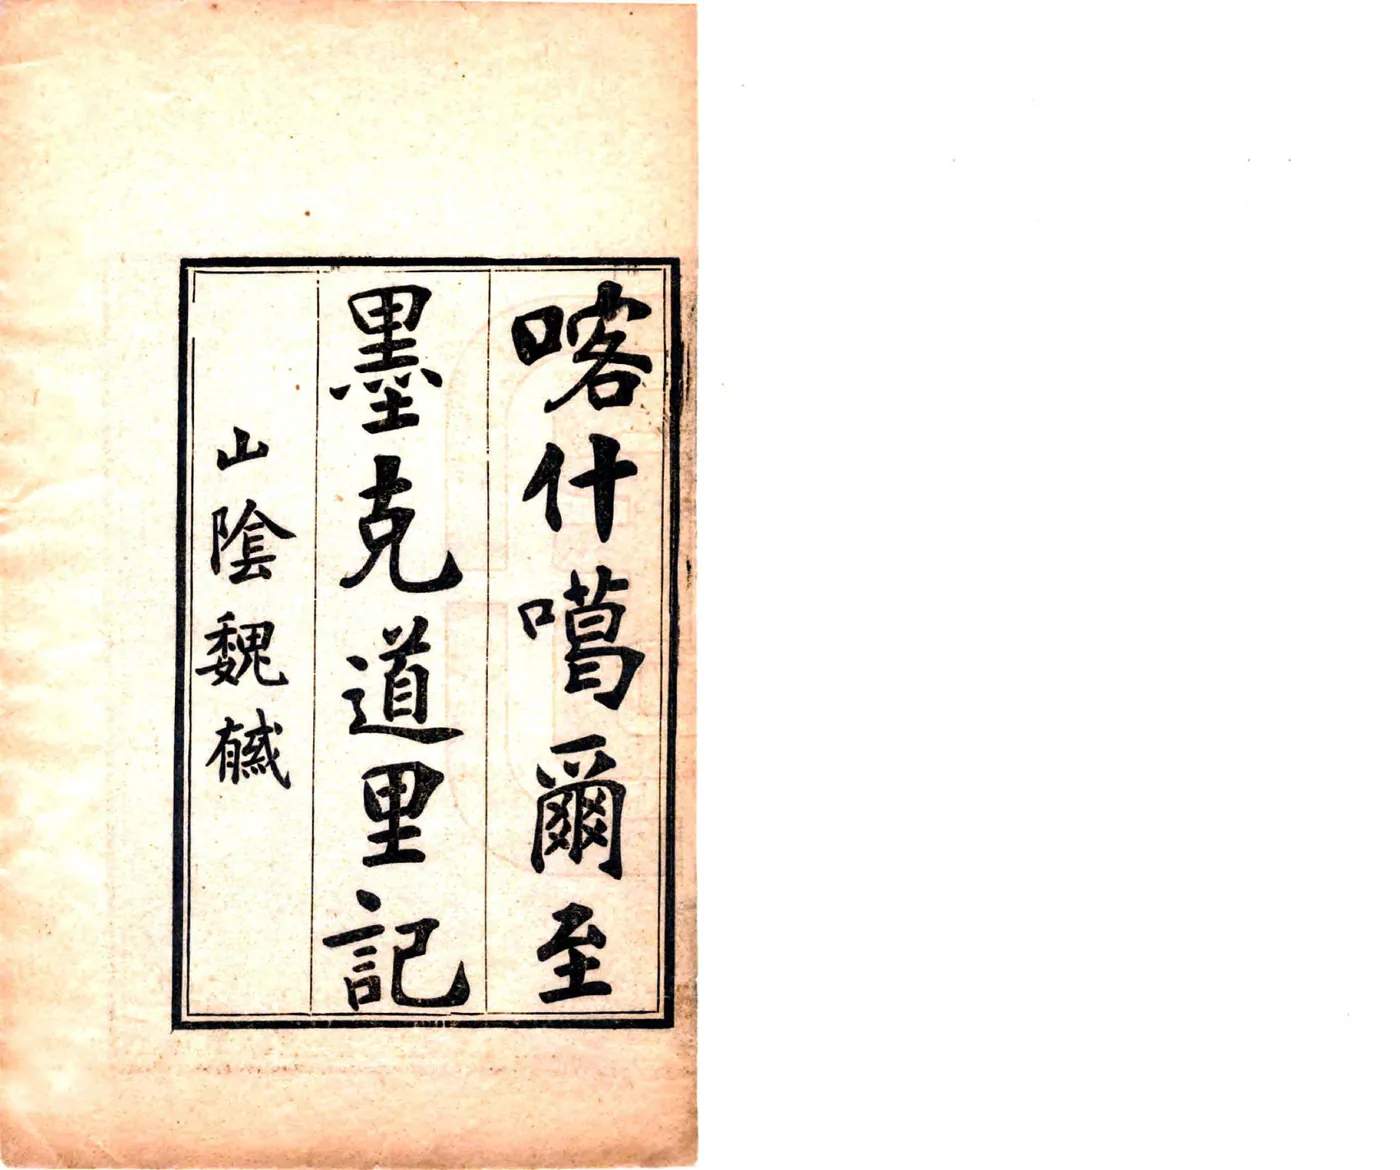 喀什噶爾至
墨克道里記
山陰魏